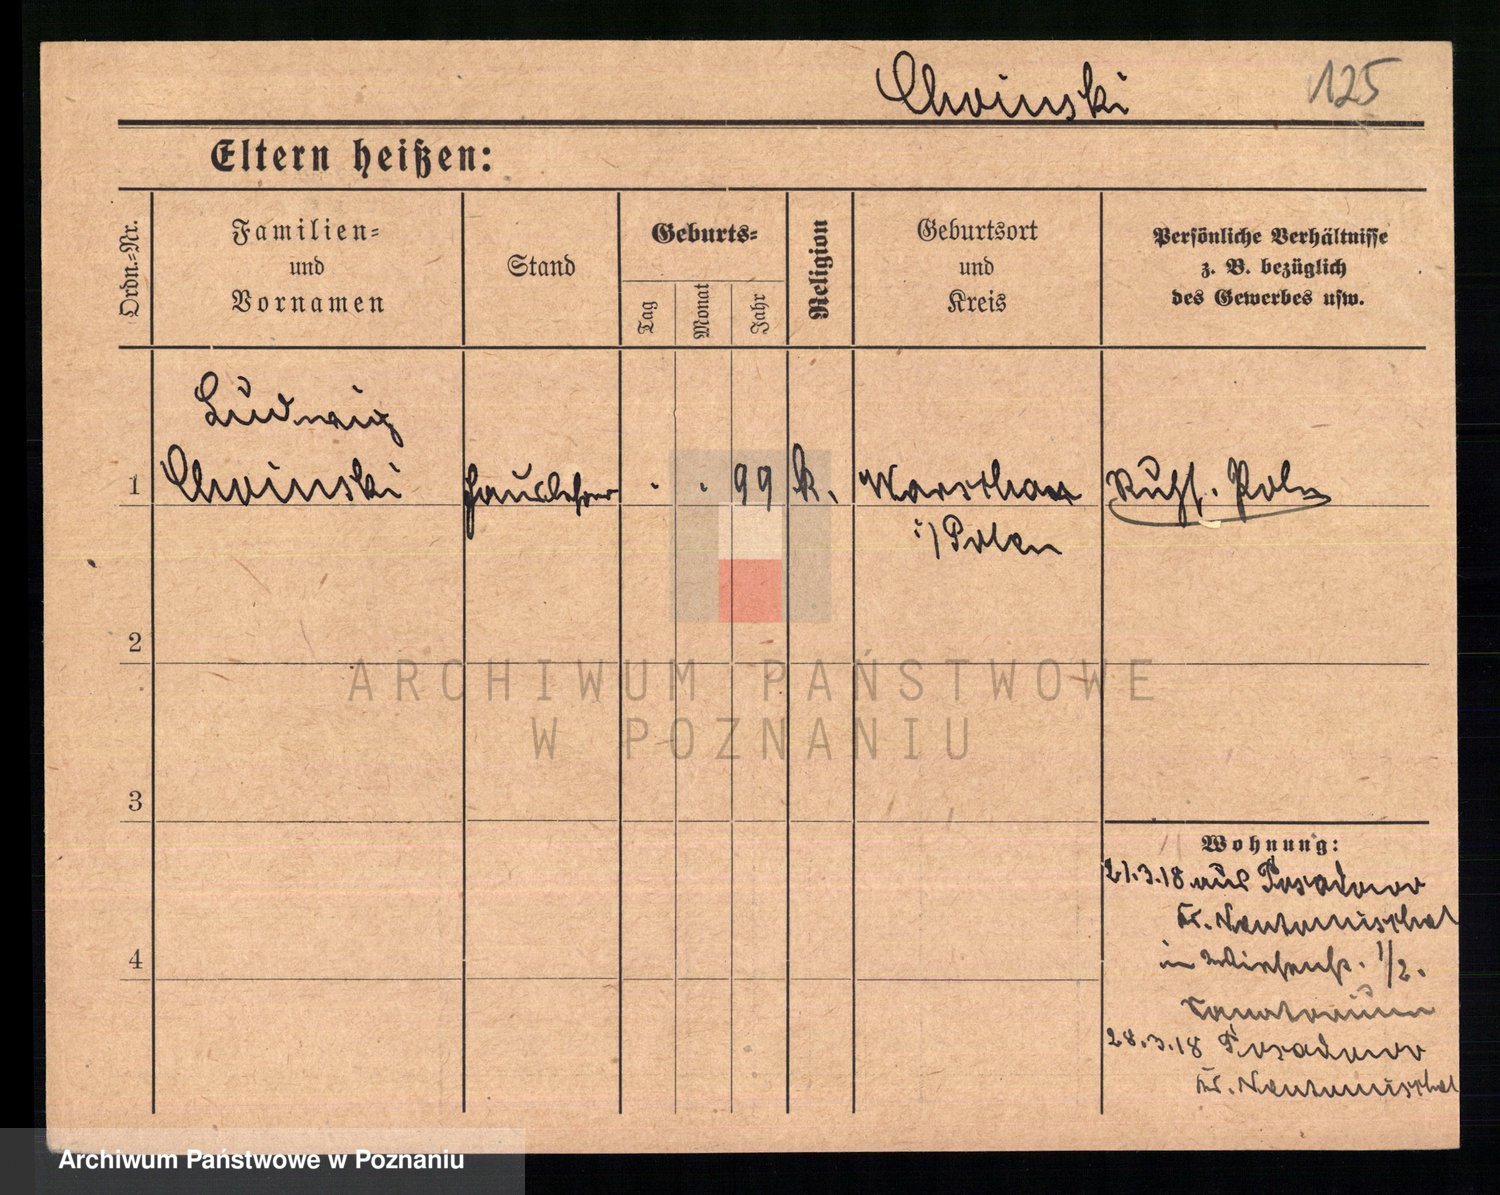 Choinski 125
Eltern heißen:
Ordn.-Nr.
Familien-
und
Vornamen
Stand
Geburts-
Tag
Monat
Jahr
Religion
Geburtsort
und
Kreis
Persönliche Verhältnisse
z. B. bezüglich
des Gewerbes usw.
Ludwig
1 Choinski Hauslehrer . . 99 k. Warschau Russ. Polen
i/Polen
2
3
4
Wohnung:
21.3.18 aus Posadowo
Kr. Neutomischel
in 1/2.
Sanatorium
28.3.18 Posadowo
Kr. Neutomischel
ARCHIWUM PAŃSTWOWE
W POZNANIU
Archiwum Państwowe w Poznaniu